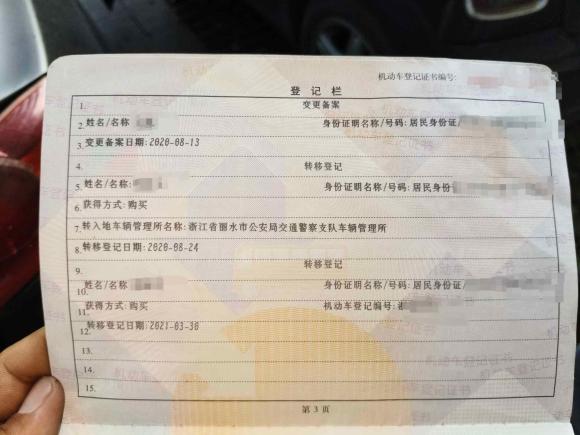 机动车登记证书编号:
登记栏
1. 变更备案
2. 姓名/名称 身份证明名称/号码: 居民身份证/
3. 变更备案日期: 2020-08-13
4. 转移登记
5. 姓名/名称: 身份证明名称/号码: 居民身份
6. 获得方式: 购买
7. 转入地车辆管理所名称: 浙江省丽水市公安局交通警察支队车辆管理所
8. 转移登记日期: 2020-08-24
9. 转移登记
10. 姓名/名称: 身份证明名称/号码: 居民身份证/
11. 获得方式: 购买 机动车登记编号: 浙
12. 转移登记日期: 2021-03-30
13.
14.
15.
第 3 页